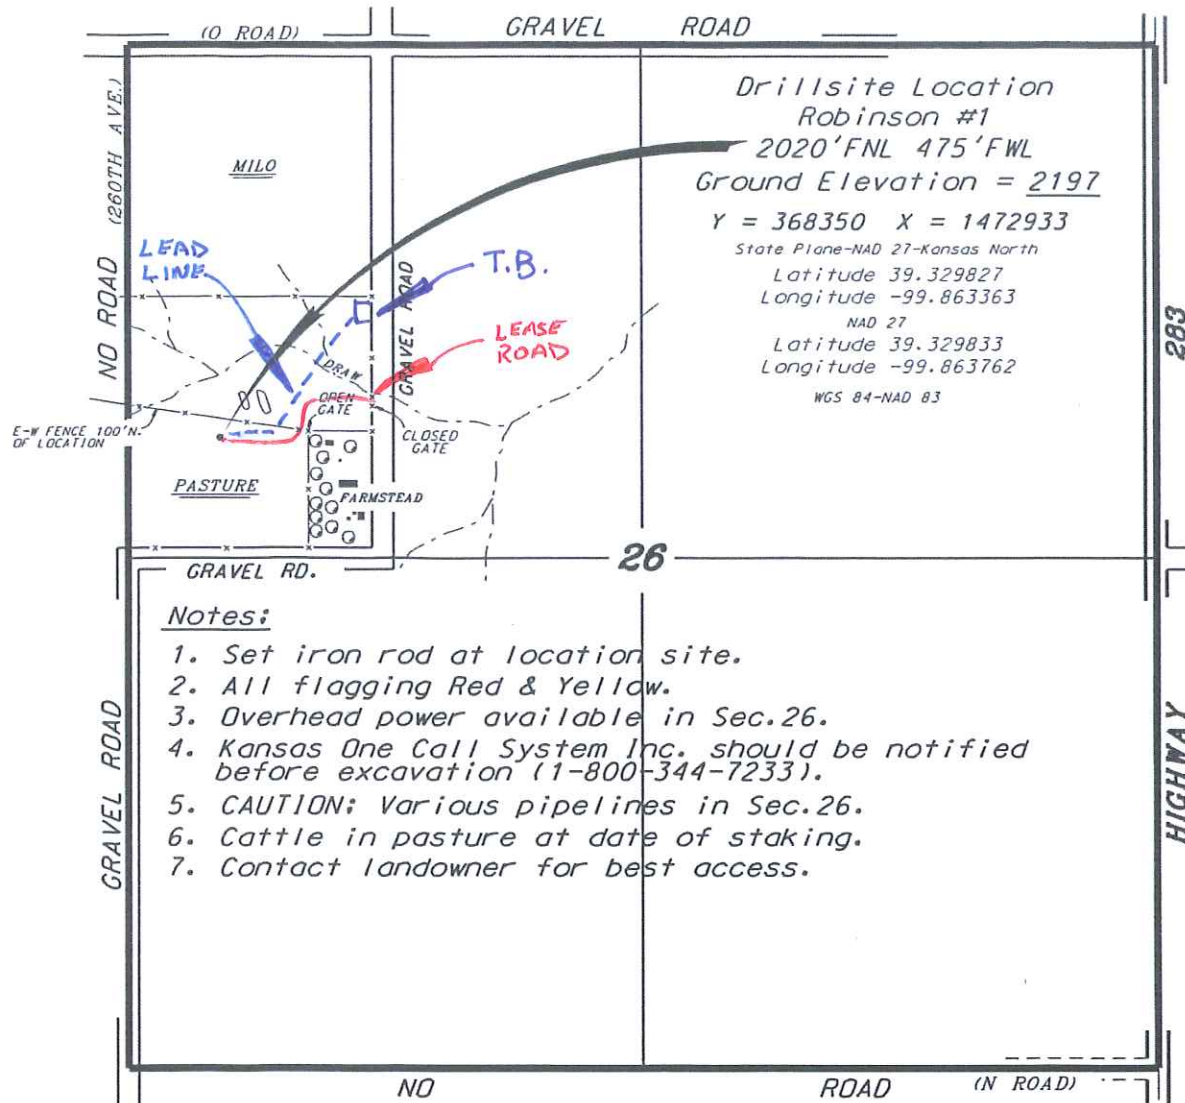 (O ROAD)
GRAVEL ROAD
(260TH AVE.)
NO ROAD
MILO
Drillsite Location
Robinson #1
2020'FNL 475'FWL
Ground Elevation = 2197
Y = 368350 X = 1472933
State Plane-NAD 27-Kansas North
Latitude 39.329827
Longitude -99.863363
NAD 27
Latitude 39.329833
Longitude -99.863762
WGS 84-NAD 83
LEAD
LINE
T.B.
GRAVEL ROAD
LEASE
ROAD
DRAW
OPEN
GATE
CLOSED
GATE
E-W FENCE 100'N.
OF LOCATION
PASTURE
FARMSTEAD
283
26
GRAVEL RD.
Notes:
1. Set iron rod at location site.
2. All flagging Red & Yellow.
3. Overhead power available in Sec.26.
4. Kansas One Call System Inc. should be notified
before excavation (1-800-344-7233).
5. CAUTION: Various pipelines in Sec.26.
6. Cattle in pasture at date of staking.
7. Contact landowner for best access.
GRAVEL ROAD
HIGHWAY
NO ROAD
(N ROAD)